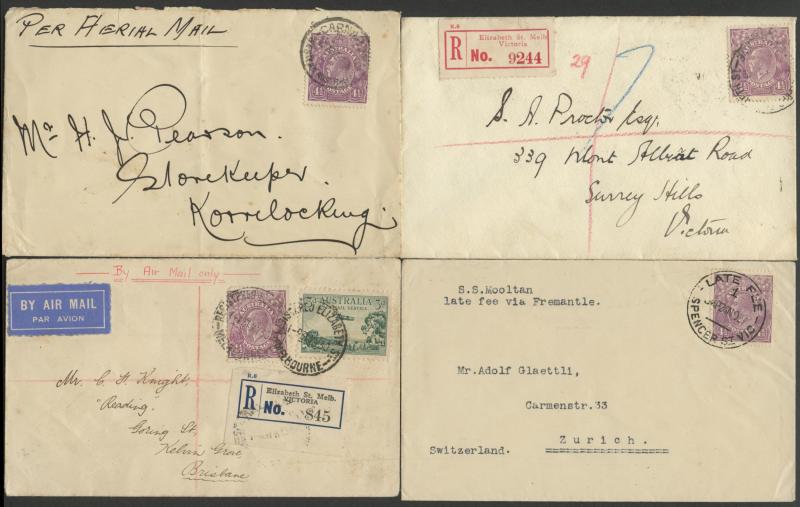 PER AERIAL MAIL
CARN
AUSTRALIA
4½
POSTAGE
Mr H. J. Pearson.
Storekeeper.
Korrelocking.
R.6
R
Elizabeth St. Melb.
Victoria
No. 9244
29
AUSTRALIA
S. A. Procter Esq.
339 Mont Albert Road
Surrey Hills
Victoria
By Air Mail only
BY AIR MAIL
PAR AVION
AUSTRALIA
AIR MAIL SERVICE
3D
ELIZABETH
MELBOURNE
R.6
R
Elizabeth St. Melb.
VICTORIA
No. 845
Mr. C. H. Knight,
"Reading".
Goring St,
Kelvin Grove
Brisbane
S.S.Mooltan
late fee via Fremantle.
LATE FEE
1
SPENCER ST VIC
Mr.Adolf Glaettli,
Carmenstr.33
Zurich.
Switzerland.